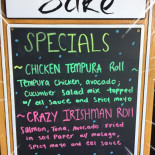 Sake
SPECIALS
~ CHICKEN TEMPURA ROLL
TEMPURA CHICKEN, AVOCADO,
CUCUMBER SALAD MIX TOPPED
W/ EEL SAUCE AND SPICY MAYO
~ CRAZY IRISHMAN ROLL
SALMON, TUNA, AVOCADO FRIED
IN SOY PAPER W/ MASAGO,
SPICY MAYO AND EEL SAUCE